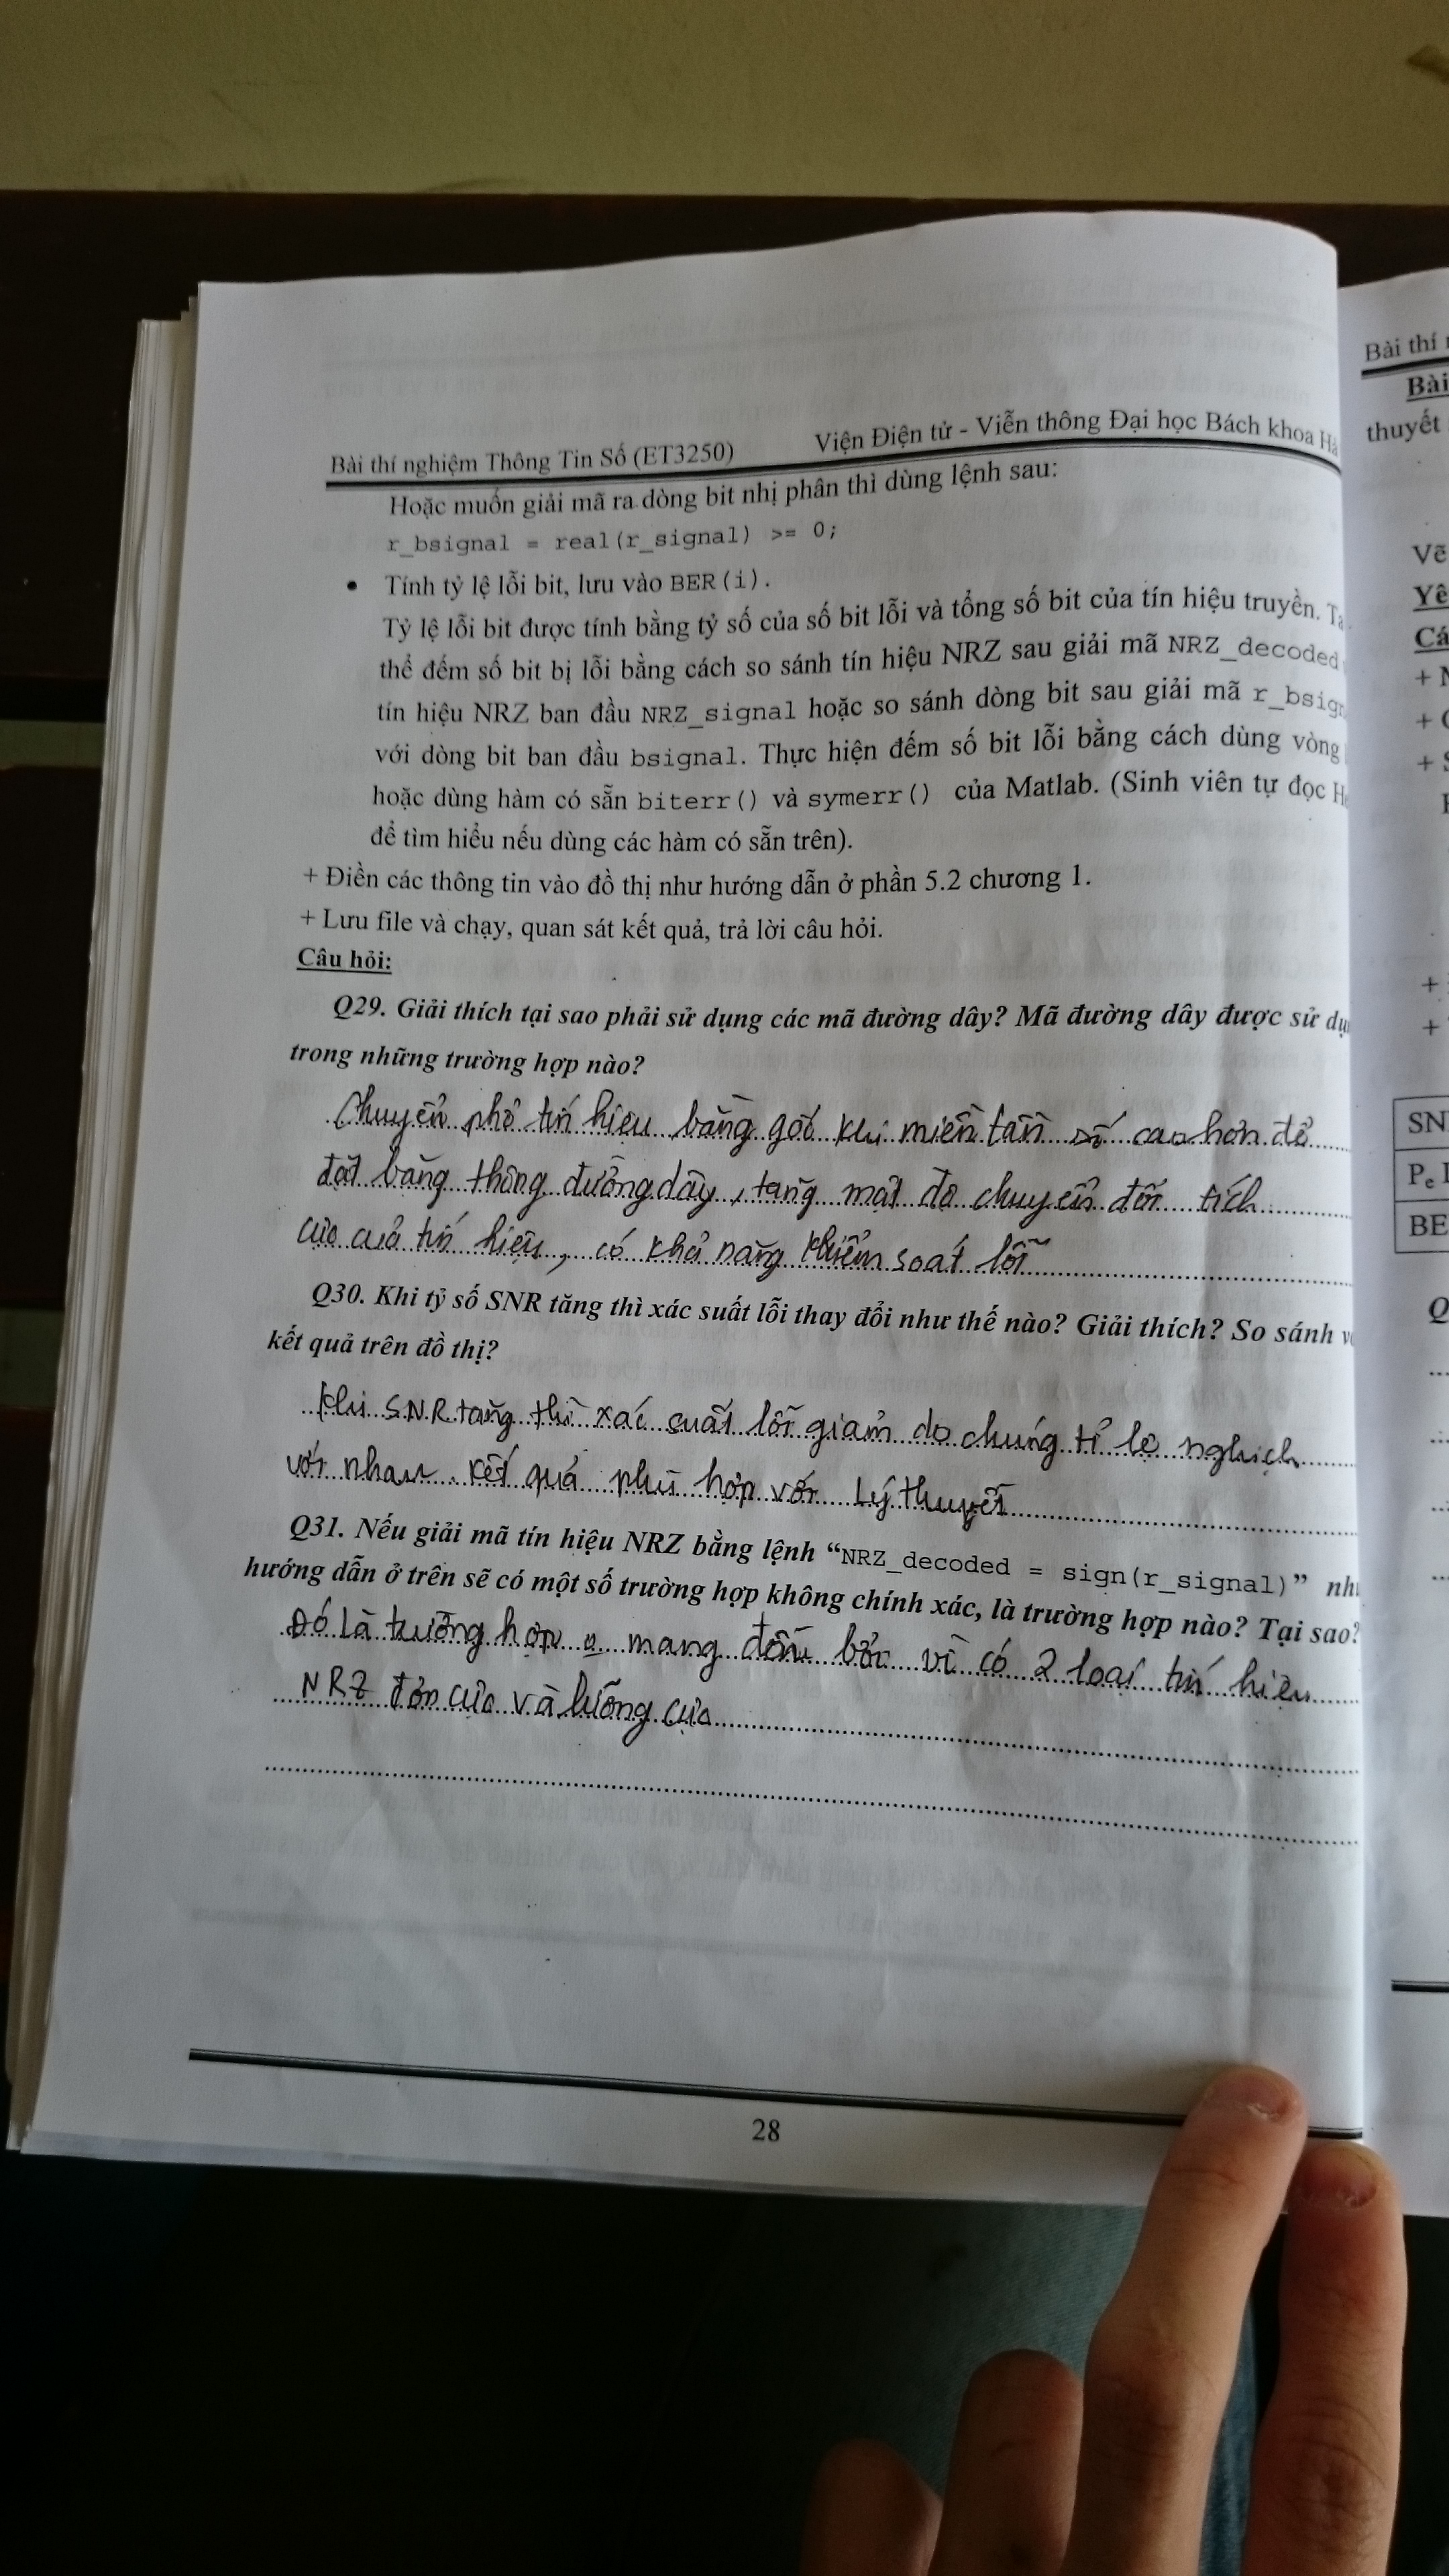 Bài thí nghiệm Thông Tin Số (ET3250) Viện Điện tử - Viễn thông Đại học Bách khoa Hà
Hoặc muốn giải mã ra dòng bit nhị phân thì dùng lệnh sau:
r_bsignal = real(r_signal) >= 0;
• Tính tỷ lệ lỗi bit, lưu vào BER(i).
Tỷ lệ lỗi bit được tính bằng tỷ số của số bit lỗi và tổng số bit của tín hiệu truyền. Ta
thể đếm số bit bị lỗi bằng cách so sánh tín hiệu NRZ sau giải mã NRZ_decoded
tín hiệu NRZ ban đầu NRZ_signal hoặc so sánh dòng bit sau giải mã r_bsign
với dòng bit ban đầu bsignal. Thực hiện đếm số bit lỗi bằng cách dùng vòng
hoặc dùng hàm có sẵn biterr() và symerr() của Matlab. (Sinh viên tự đọc He
để tìm hiểu nếu dùng các hàm có sẵn trên).
+ Điền các thông tin vào đồ thị như hướng dẫn ở phần 5.2 chương 1.
+ Lưu file và chạy, quan sát kết quả, trả lời câu hỏi.
Câu hỏi:
Q29. Giải thích tại sao phải sử dụng các mã đường dây? Mã đường dây được sử dụ
trong những trường hợp nào?
Chuyển phổ tín hiệu băng gốc khi miền tần số cao hơn để
đặt băng thông đường dây, tăng mật độ chuyển đổi tích
cực của tín hiệu, có khả năng khiểm soát lỗi
Q30. Khi tỷ số SNR tăng thì xác suất lỗi thay đổi như thế nào? Giải thích? So sánh v
kết quả trên đồ thị?
Khi SNR tăng thì xác suất lỗi giảm do chúng tỉ lệ nghịch
với nhau. Kết quả phù hợp với Lý thuyết
Q31. Nếu giải mã tín hiệu NRZ bằng lệnh “NRZ_decoded = sign(r_signal)” nh
hướng dẫn ở trên sẽ có một số trường hợp không chính xác, là trường hợp nào? Tại sao?
Đó là trường hợp mang dấu bởi vì có 2 loại tín hiệu
NRZ đơn cực và lưỡng cực
28
Bài thí
Bài
thuyết
Vẽ
Yê
Cá
+
+
+
+
+
SN
Pe
BE
Q